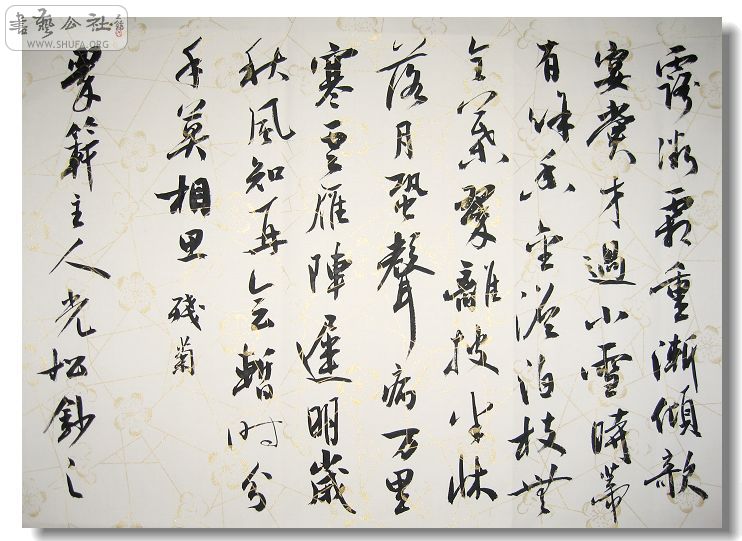 書藝公社
WWW.SHUFA.ORG
露凝霜重漸傾欹
宴賞才過小雪時蒂
有餘香金澹泊枝無
全葉翠離披半床
落月蛩聲病万里
寒雲雁陣遲明歲
秋風知再会暫时分
手莫相思 殘菊
翠竹軒主人光松鈔之